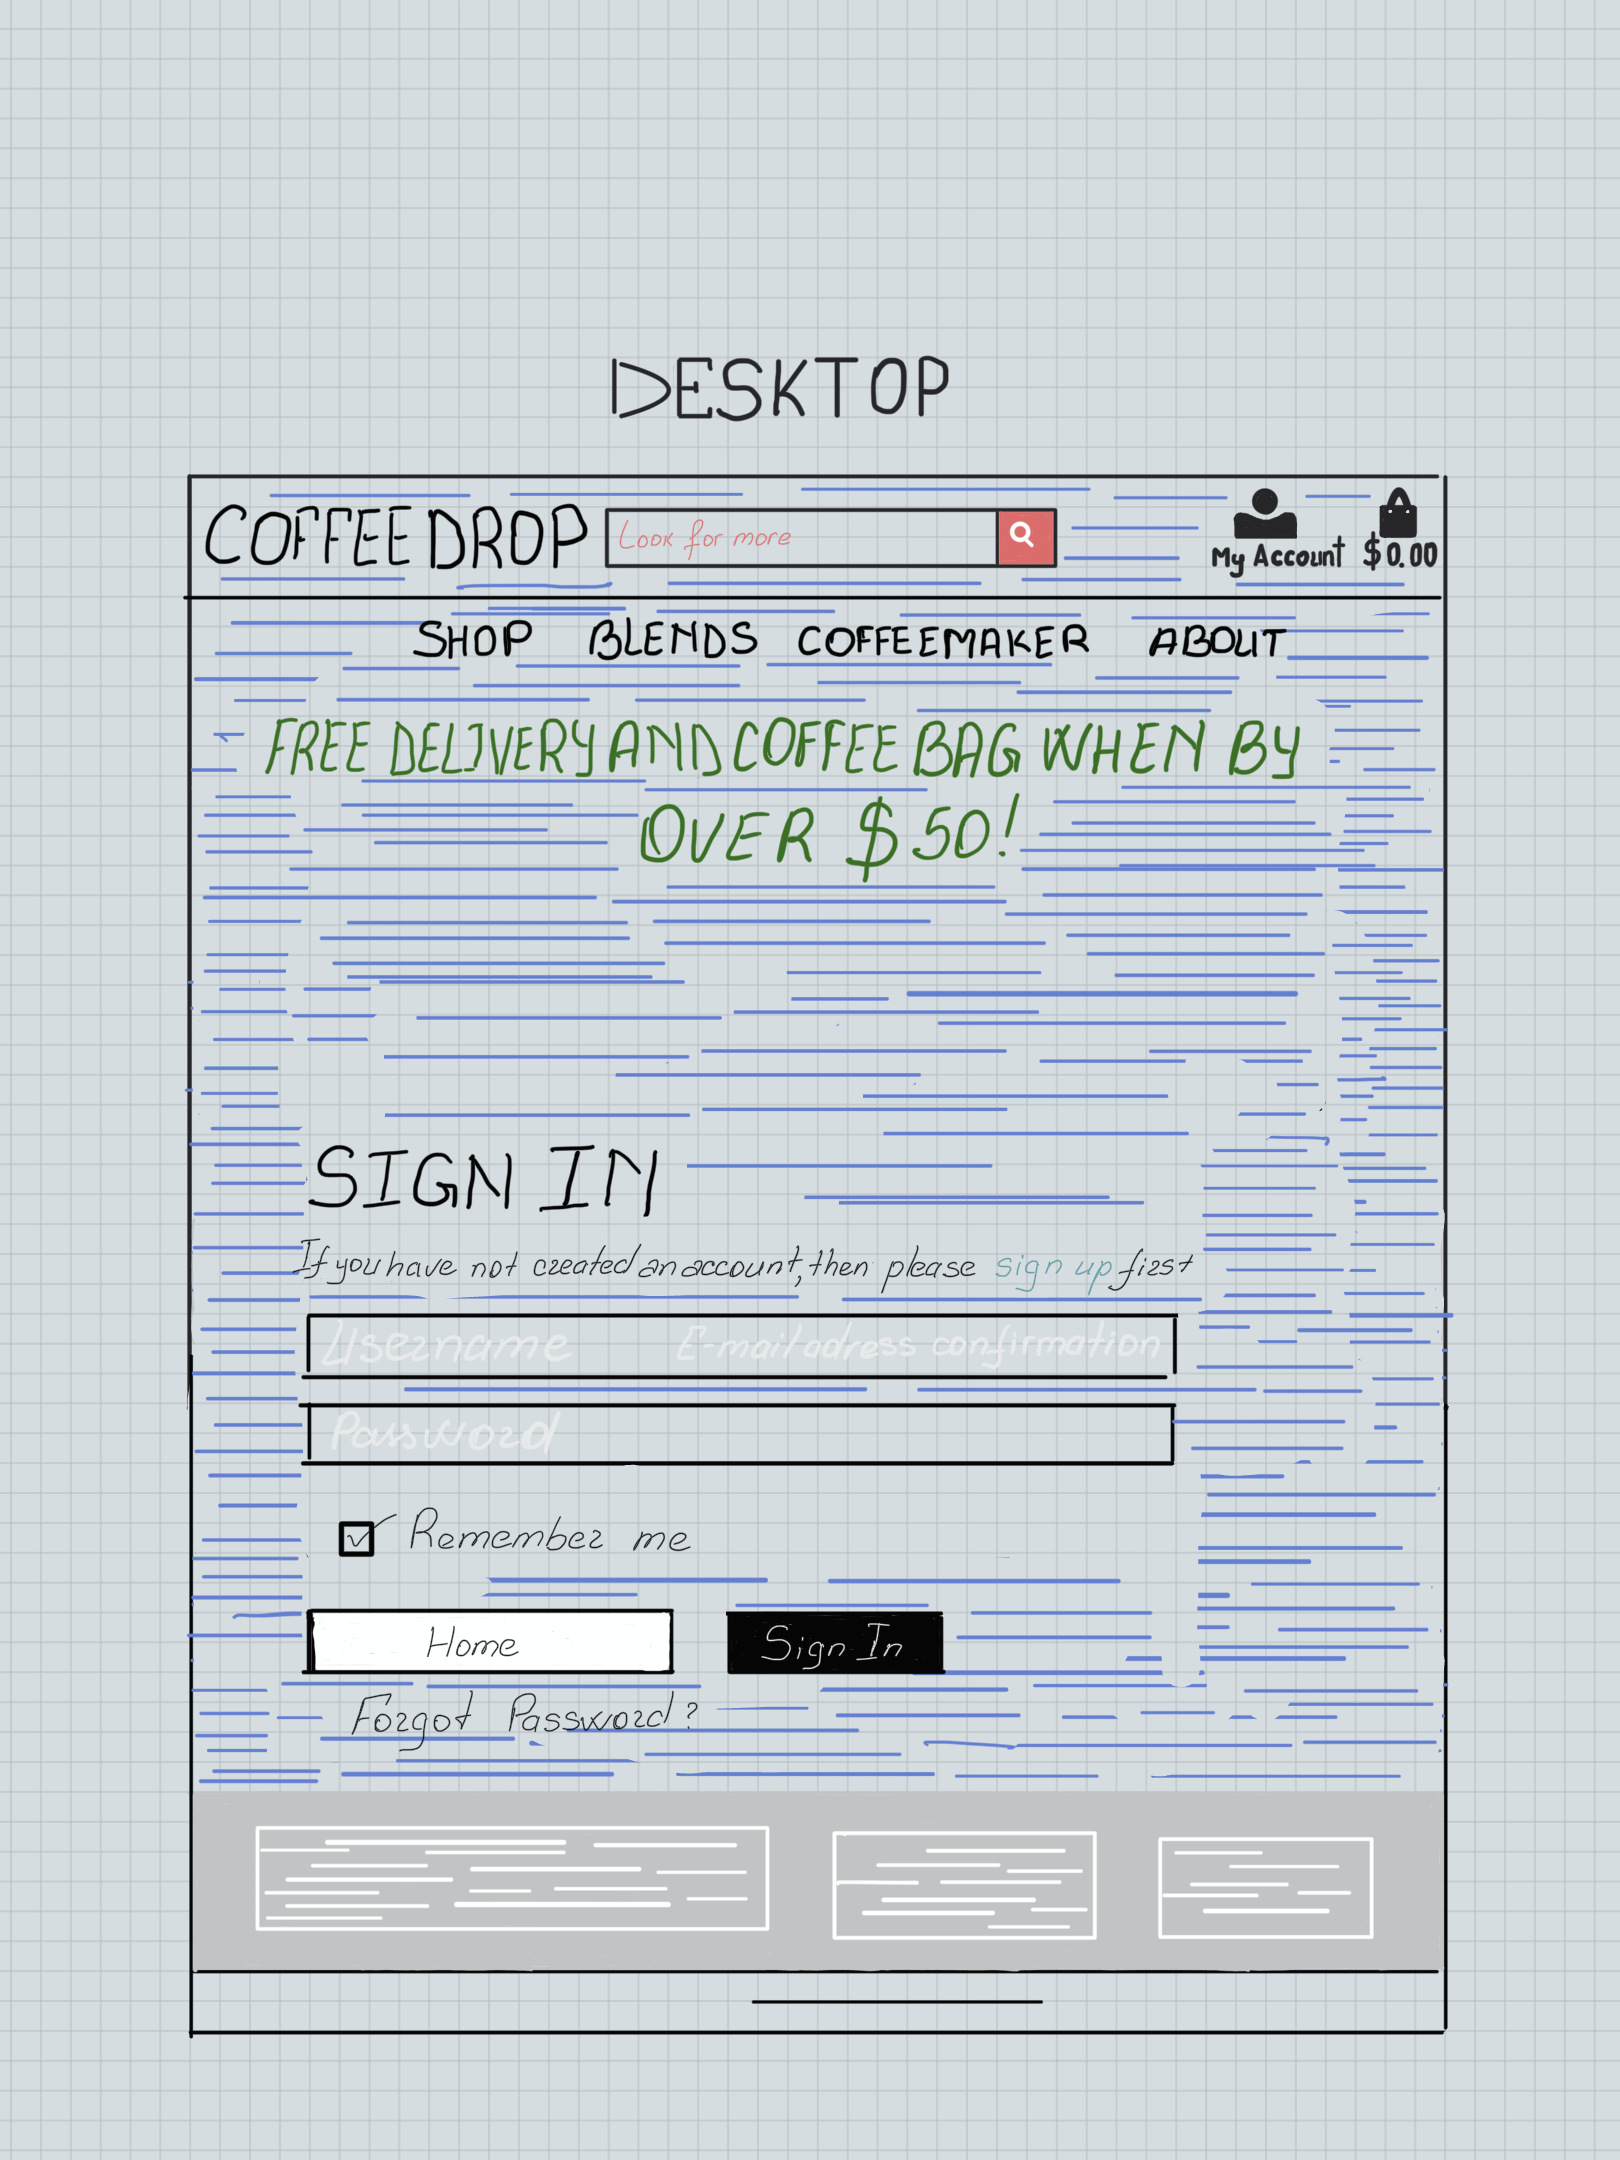 DESKTOP
COFFEE DROP
Look for more
My Account
$0.00
SHOP BLENDS COFFEEMAKER ABOUT
FREE DELIVERY AND COFFEE BAG WHEN BY
OVER $50!
SIGN IN
If you have not created an account, then please sign up first
Username E-mail adress confirmation
Password
Remember me
Home Sign In
Forgot Password?